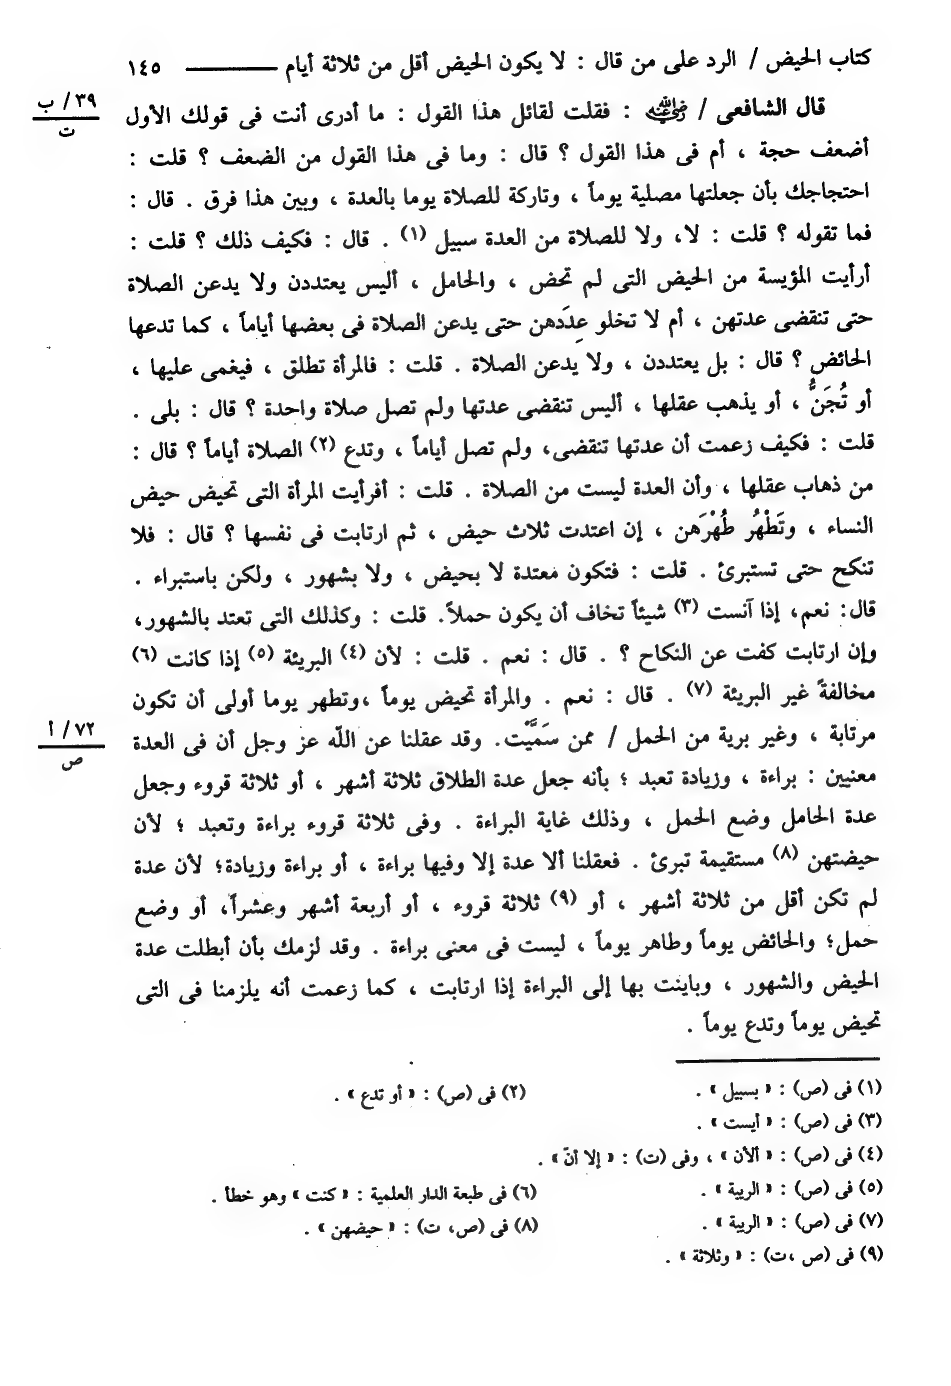 كتاب الحيض / الرد على من قال : لا يكون الحيض أقل من ثلاثة أيام ــــــــــ ١٤٥
قال الشافعى / رضي الله عنه : فقلت لقائل هذا القول : ما أدرى أنت فى قولك الأول
٣٩ / ب
ت
أضعف حجة ، أم فى هذا القول ؟ قال : وما فى هذا القول من الضعف ؟ قلت :
احتجاجك بأن جعلتها مصلية يوماً ، وتاركة للصلاة يوما بالعدة ، وبين هذا فرق . قال :
فما تقوله ؟ قلت : لا، ولا للصلاة من العدة سبيل (١) . قال : فكيف ذلك ؟ قلت :
أرأيت المؤيسة من الحيض التى لم تحض ، والحامل ، أليس يعتددن ولا يدعن الصلاة
حتى تنقضى عدتهن ، أم لا تخلو عِدَدهن حتى يدعن الصلاة فى بعضها أياماً ، كما تدعها
الحائض ؟ قال : بل يعتددن ، ولا يدعن الصلاة . قلت : فالمرأة تطلق ، فيغمى عليها ،
أو تُجَنُّ ، أو يذهب عقلها ، أليس تنقضى عدتها ولم تصل صلاة واحدة ؟ قال : بلى .
قلت : فكيف زعمت أن عدتها تنقضى، ولم تصل أياماً ، وتدع (٢) الصلاة أياماً ؟ قال :
من ذهاب عقلها ، وأن العدة ليست من الصلاة . قلت : أفرأيت المرأة التى تحيض حيض
النساء ، وتَطْهُر طُهْرَهن ، إن اعتدت ثلاث حيض ، ثم ارتابت فى نفسها ؟ قال : فلا
تنكح حتى تستبرئ . قلت : فتكون معتدة لا بحيض ، ولا بشهور ، ولكن باستبراء .
قال: نعم، إذا آنست (٣) شيئاً تخاف أن يكون حملاً. قلت : وكذلك التى تعتد بالشهور،
وإن ارتابت كفت عن النكاح ؟ . قال : نعم . قلت : لأن (٤) البريئة (٥) إذا كانت (٦)
مخالفةً غير البريئة (٧) . قال : نعم . والمرأة تحيض يوماً ،وتطهر يوما أولى أن تكون
مرتابة ، وغير برية من الحمل / ممن سَمَّيْت. وقد عقلنا عن الله عز وجل أن فى العدة
٧٢ / أ
ص
معنيين : براءة ، وزيادة تعبد ؛ بأنه جعل عدة الطلاق ثلاثة أشهر ، أو ثلاثة قروء وجعل
عدة الحامل وضع الحمل ، وذلك غاية البراءة . وفى ثلاثة قروء براءة وتعبد ؛ لأن
حيضتهن (٨) مستقيمة تبرئ . فعقلنا ألا عدة إلا وفيها براءة ، أو براءة وزيادة؛ لأن عدة
لم تكن أقل من ثلاثة أشهر ، أو (٩) ثلاثة قروء ، أو أربعة أشهر وعشراً، أو وضع
حمل؛ والحائض يوماً وطاهر يوماً ، ليست فى معنى براءة . وقد لزمك بأن أبطلت عدة
الحيض والشهور ، وباينت بها إلى البراءة إذا ارتابت ، كما زعمت أنه يلزمنا فى التى
تحيض يوماً وتدع يوماً .
(١) فى (ص) : « بسبيل » .
(٢) فى (ص) : « أو تدع » .
(٣) فى (ص) : « أيست » .
(٤) فى (ص) : « ألأن » ، وفى (ت) : « إلا أنّ » .
(٥) فى (ص) : « الريبة » .
(٦) فى طبعة الدار العلمية : « كنت » وهو خطأ .
(٧) فى (ص) : « الريبة » .
(٨) فى (ص، ت) : « حيضهن » .
(٩) فى (ص ،ت) : « وثلاثة » .